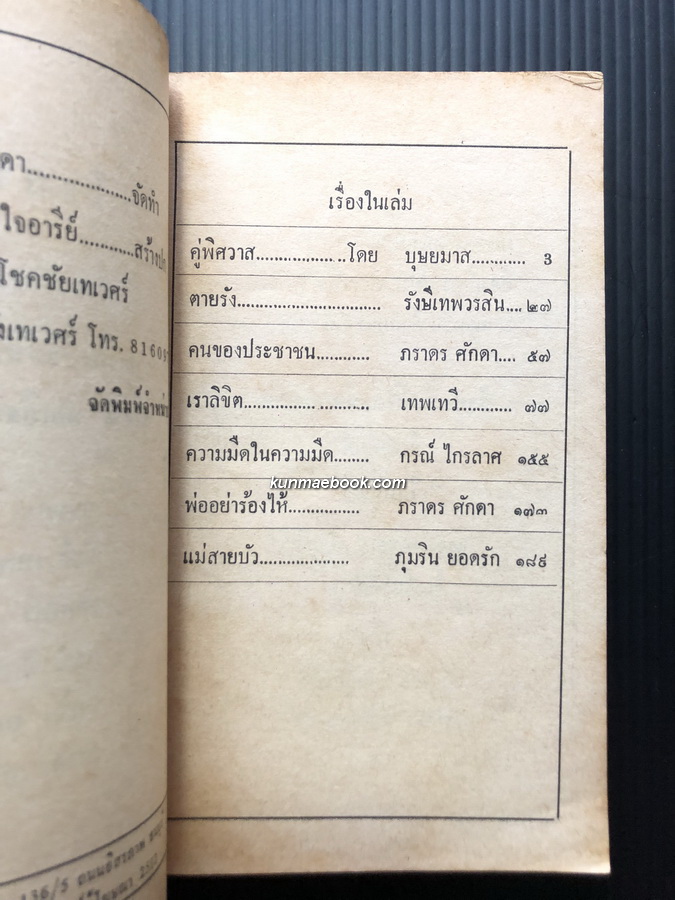 ดา...................จัดทำ
ใจอารีย์...........สร้างปก
โชคชัยเทเวศร์
งเทเวศร์ โทร. 8160
จัดพิมพ์จำหน่าย
136/5 ถนน
เรื่องในเล่ม
คู่พิศวาส...................โดย บุษยมาส............ 3
ตายรัง............................... รังษีเทพวรสิน.... ๒๗
คนของประชาชน............ ภราดร ศักดา.... ๕๗
เราลิขิต............................ เทพเทวี............ ๗๗
ความมืดในความมืด........ กรณ์ ไกรลาศ ๑๕๕
kunmaebook.com
พ่ออย่าร้องไห้................ ภราดร ศักดา ๑๗๓
แม่สายบัว.................... ภุมริน ยอดรัก ๑๘๙